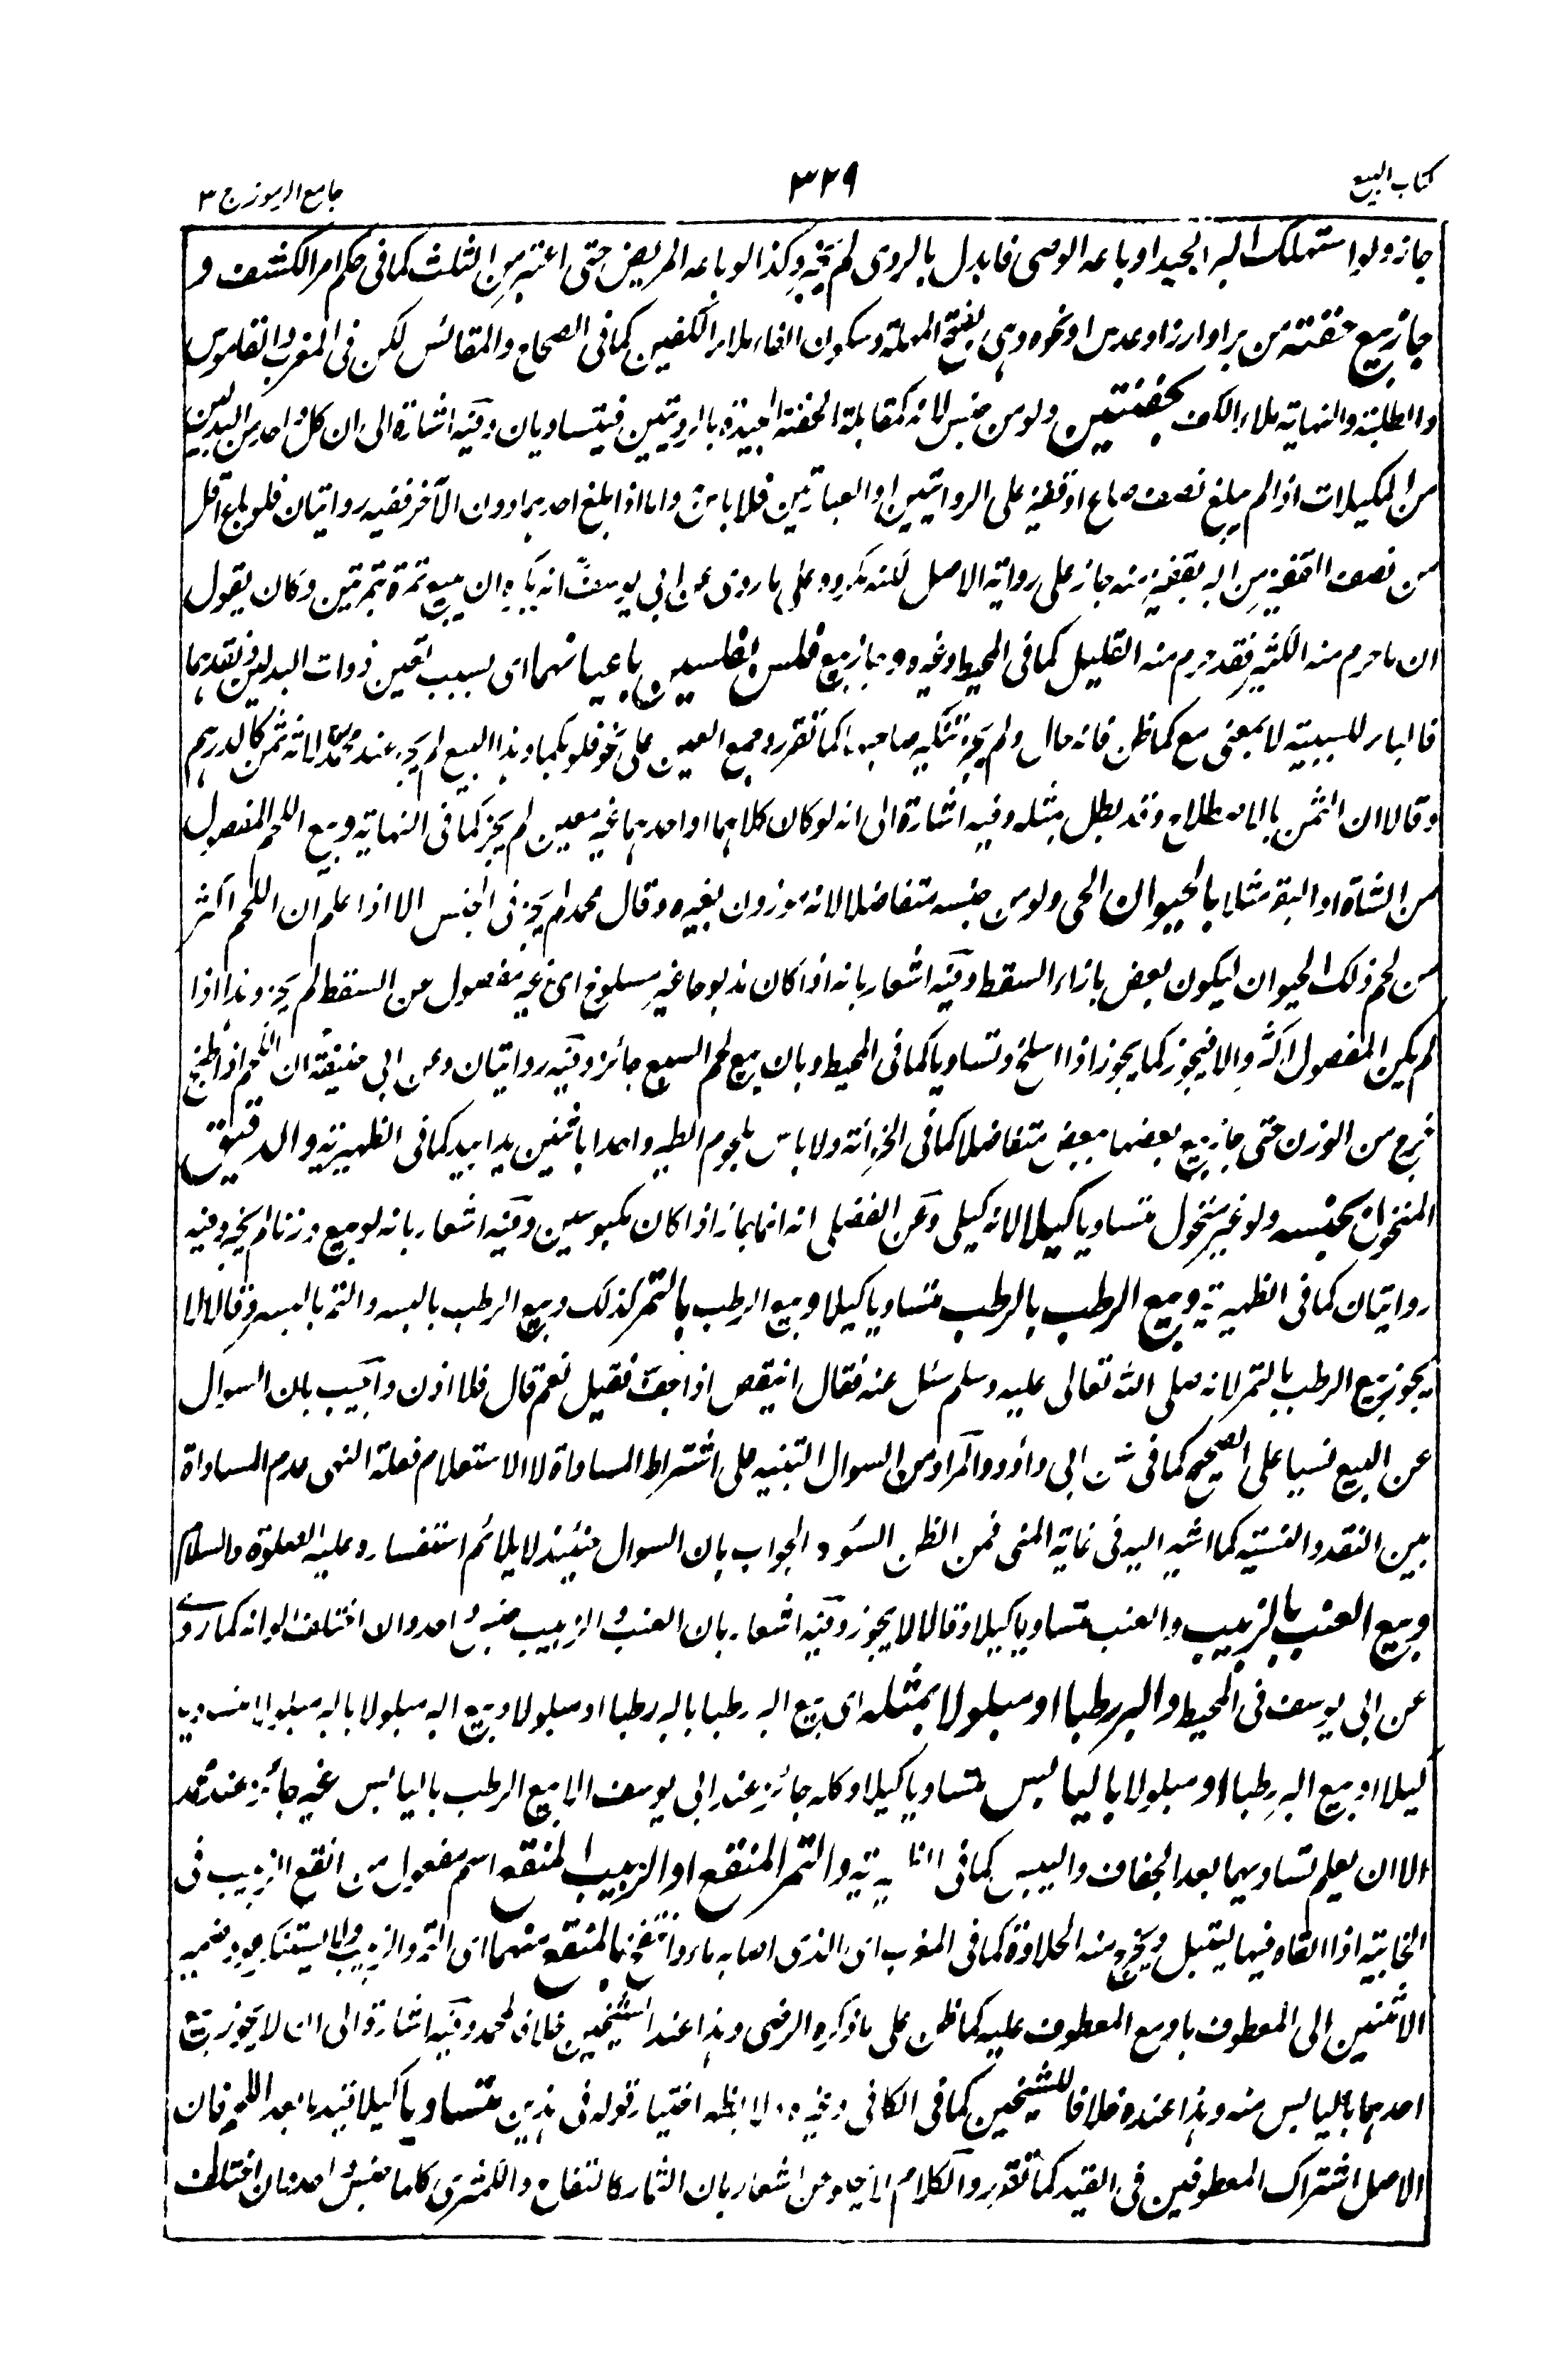 كتاب البيع
٣٢٩
جامع الرموز ج ٣
جاز ولو استهلك البر الجيد او باعه الوصى فابدل بالردى لم يجز وكذا لو باعه المريض حتى اعتبر من الثلث كما فى حكام الكشف و
جاز بيع حفنة من بر او ارز او عدس او نحوه وهى بفتح المهملة وسكون الفاء ملاء الكفين كما فى الصحاح والمقائس لكن فى المغرب والقاموس
والطلبة والنهاية ملاء الكف بحفنتين ولو من جنس لانه كمقابلة الحفنة الجيدة بالرديتين فيتساويان وفيه اشارة الى ان كل واحد من البدلين
من المكيلات اذا لم يبلغ نصف صاع او قفيز على الروايتين او العبارتين فلا باس واما اذا بلغ احدهما دون الآخر ففيه روايتان فلو باع اقل
من نصف القفيز من البر بقفيز منه جاز على رواية الاصل لكنه مكروه على ما روى عن ابى يوسف انه يكره ان يبيع تمرة بتمرتين وكان يقول
ان ما حرم منه الكثير فقد حرم منه القليل كما فى المحيط وغيره وجاز بيع فلس بفلسين باعيانهما اى بسبب تعين ذوات البدلين نقدهما
فالباء للسببية لا بمعنى مع كما ظن فانه حال ولم يجز تنكير صاحبها كما تقرر وجمع العين على نحو قلوبكما وهذا البيع لم يجز عند محمد لانه ثمن كالدرهم
وقالا ان الثمن بالاصطلاح وقد بطل بمثله وفيه اشارة الى انه لو كان كلاهما او احدهما غير معين لم يجز كما فى النهاية وبيع اللحم المفصول
من الشاة او البقر مثلا بالحيوان الحى ولو من جنسه متفاضلا لانه موزون بغيره وقال محمد لم يجز فى الجنس الا اذا علم ان اللحم اكثر
من لحم ذلك الحيوان ليكون بعض بازاء السقط وفيه اشعار بانه اذا كان مذبوحا غير مسلوخ اى غير مفصول عن السقط لم يجز وهذا اذا
لم يكن المفصول اكثر والا فيجوز كما يجوز اذا اسلخ وتساويا كما فى المحيط وبان بيع لحم السبع جائز وفيه روايتان وعن ابى حنيفة ان اللحم اذا طبخ
خرج من الوزن حتى جاز بيع بعضها ببعض متفاضلا كما فى الخزانة ولا باس بلحوم الطير واحدا باثنين يدا بيد كما فى الظهيرية والدقيق
المنخول بجنسه ولو غير منخول متساويا كيلا لانه كيلى وعن الفضلى انه انما جاز اذا كان مكبوسين وفيه اشعار بانه لو بيع وزنا لم يجز وفيه
روايتان كما فى الظهيرية وبيع الرطب بالرطب متساويا كيلا وبيع الرطب بالتمر كذلك وبيع الرطب بالبسر والتمر بالبسر وقالا لا
يجوز بيع الرطب بالتمر لانه صلى الله تعالى عليه وسلم سئل عنه فقال اينقص اذا جف فقيل نعم قال فلا اذن واجيب بان السوال
عن البيع نسيا على الصحيح كما فى سنن ابى داؤد والمراد من السوال التنبيه على اشتراط المساواة لا الاستعلام فعلة النهى عدم المساواة
بين النقد والنسية كما اشير اليه فى غاية المنى فمن الظن السوء الجواب بان السوال حينئذ لا يلائم استفساره عليه الصلوة والسلام
وبيع العنب بالزبيب والعنب متساويا كيلا وقالا لا يجوز وفيه اشعار بان العنب والزبيب جنس واحد وان اختلف الوانه كما روى
عن ابى يوسف فى المحيط والبر رطبا او مبلولا بمثله اى بيع البر رطبا بالبر رطبا او مبلولا وبيع البر مبلولا بالبر مبلولا متساويا
كيلا او بيع البر رطبا او مبلولا باليابس متساويا كيلا وكله جائز عند ابى يوسف الا بيع الرطب باليابس غير جائز عند محمد
الا ان يعلم تساويهما بعد الجفاف واليبس كما فى والتمر المنقع او الزبيب المنقع اسم مفعول من انقع الزبيب فى
الخابية اذا القاه فيها ليبتل ويخرج منه الحلاوة كما فى المغرب اى الذى اصابه ماء وانتفخ بالمنقع منهما اى التمر والزبيب وضمير
الاثنين الى المعطوف باو مع المعطوف عليه كما ظن على ما ذكره الرضى وهذا عند الشيخين خلافا لمحمد وفيه اشارة الى ان لا يجوز بيع
احدهما باليابس منه وهذا عنده خلافا للشيخين كما فى الكافى وغيره ولا يظهر اختيار قوله فى هذين متساويا كيلا قيد ما بعد اللحم فان
الاصل اشتراك المعطوفين فى القيد كما تقرر والكلام لا يخلو عن اشعار بان الثمار كالتفاح والكمثرى كلها جنس واحد فان اختلف